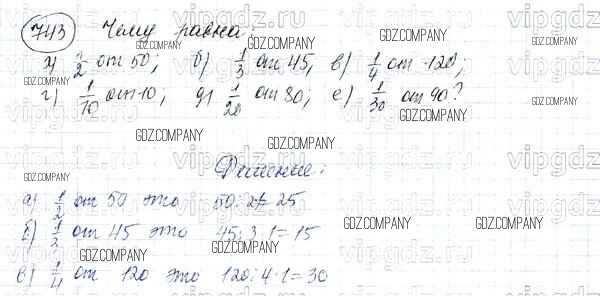 743 Чему равна:
а) 1/2 от 50; б) 1/3 от 45, в) 1/4 от 120;
г) 1/10 от 10, д) 1/20 от 80; е) 1/30 от 90?
Решение:
а) 1/2 от 50 это 50:2 = 25
б) 1/2 от 45 это 45:3·1=15
в) 1/4 от 120 это 120:4·1=30
GDZ.COMPANY
vipgdz